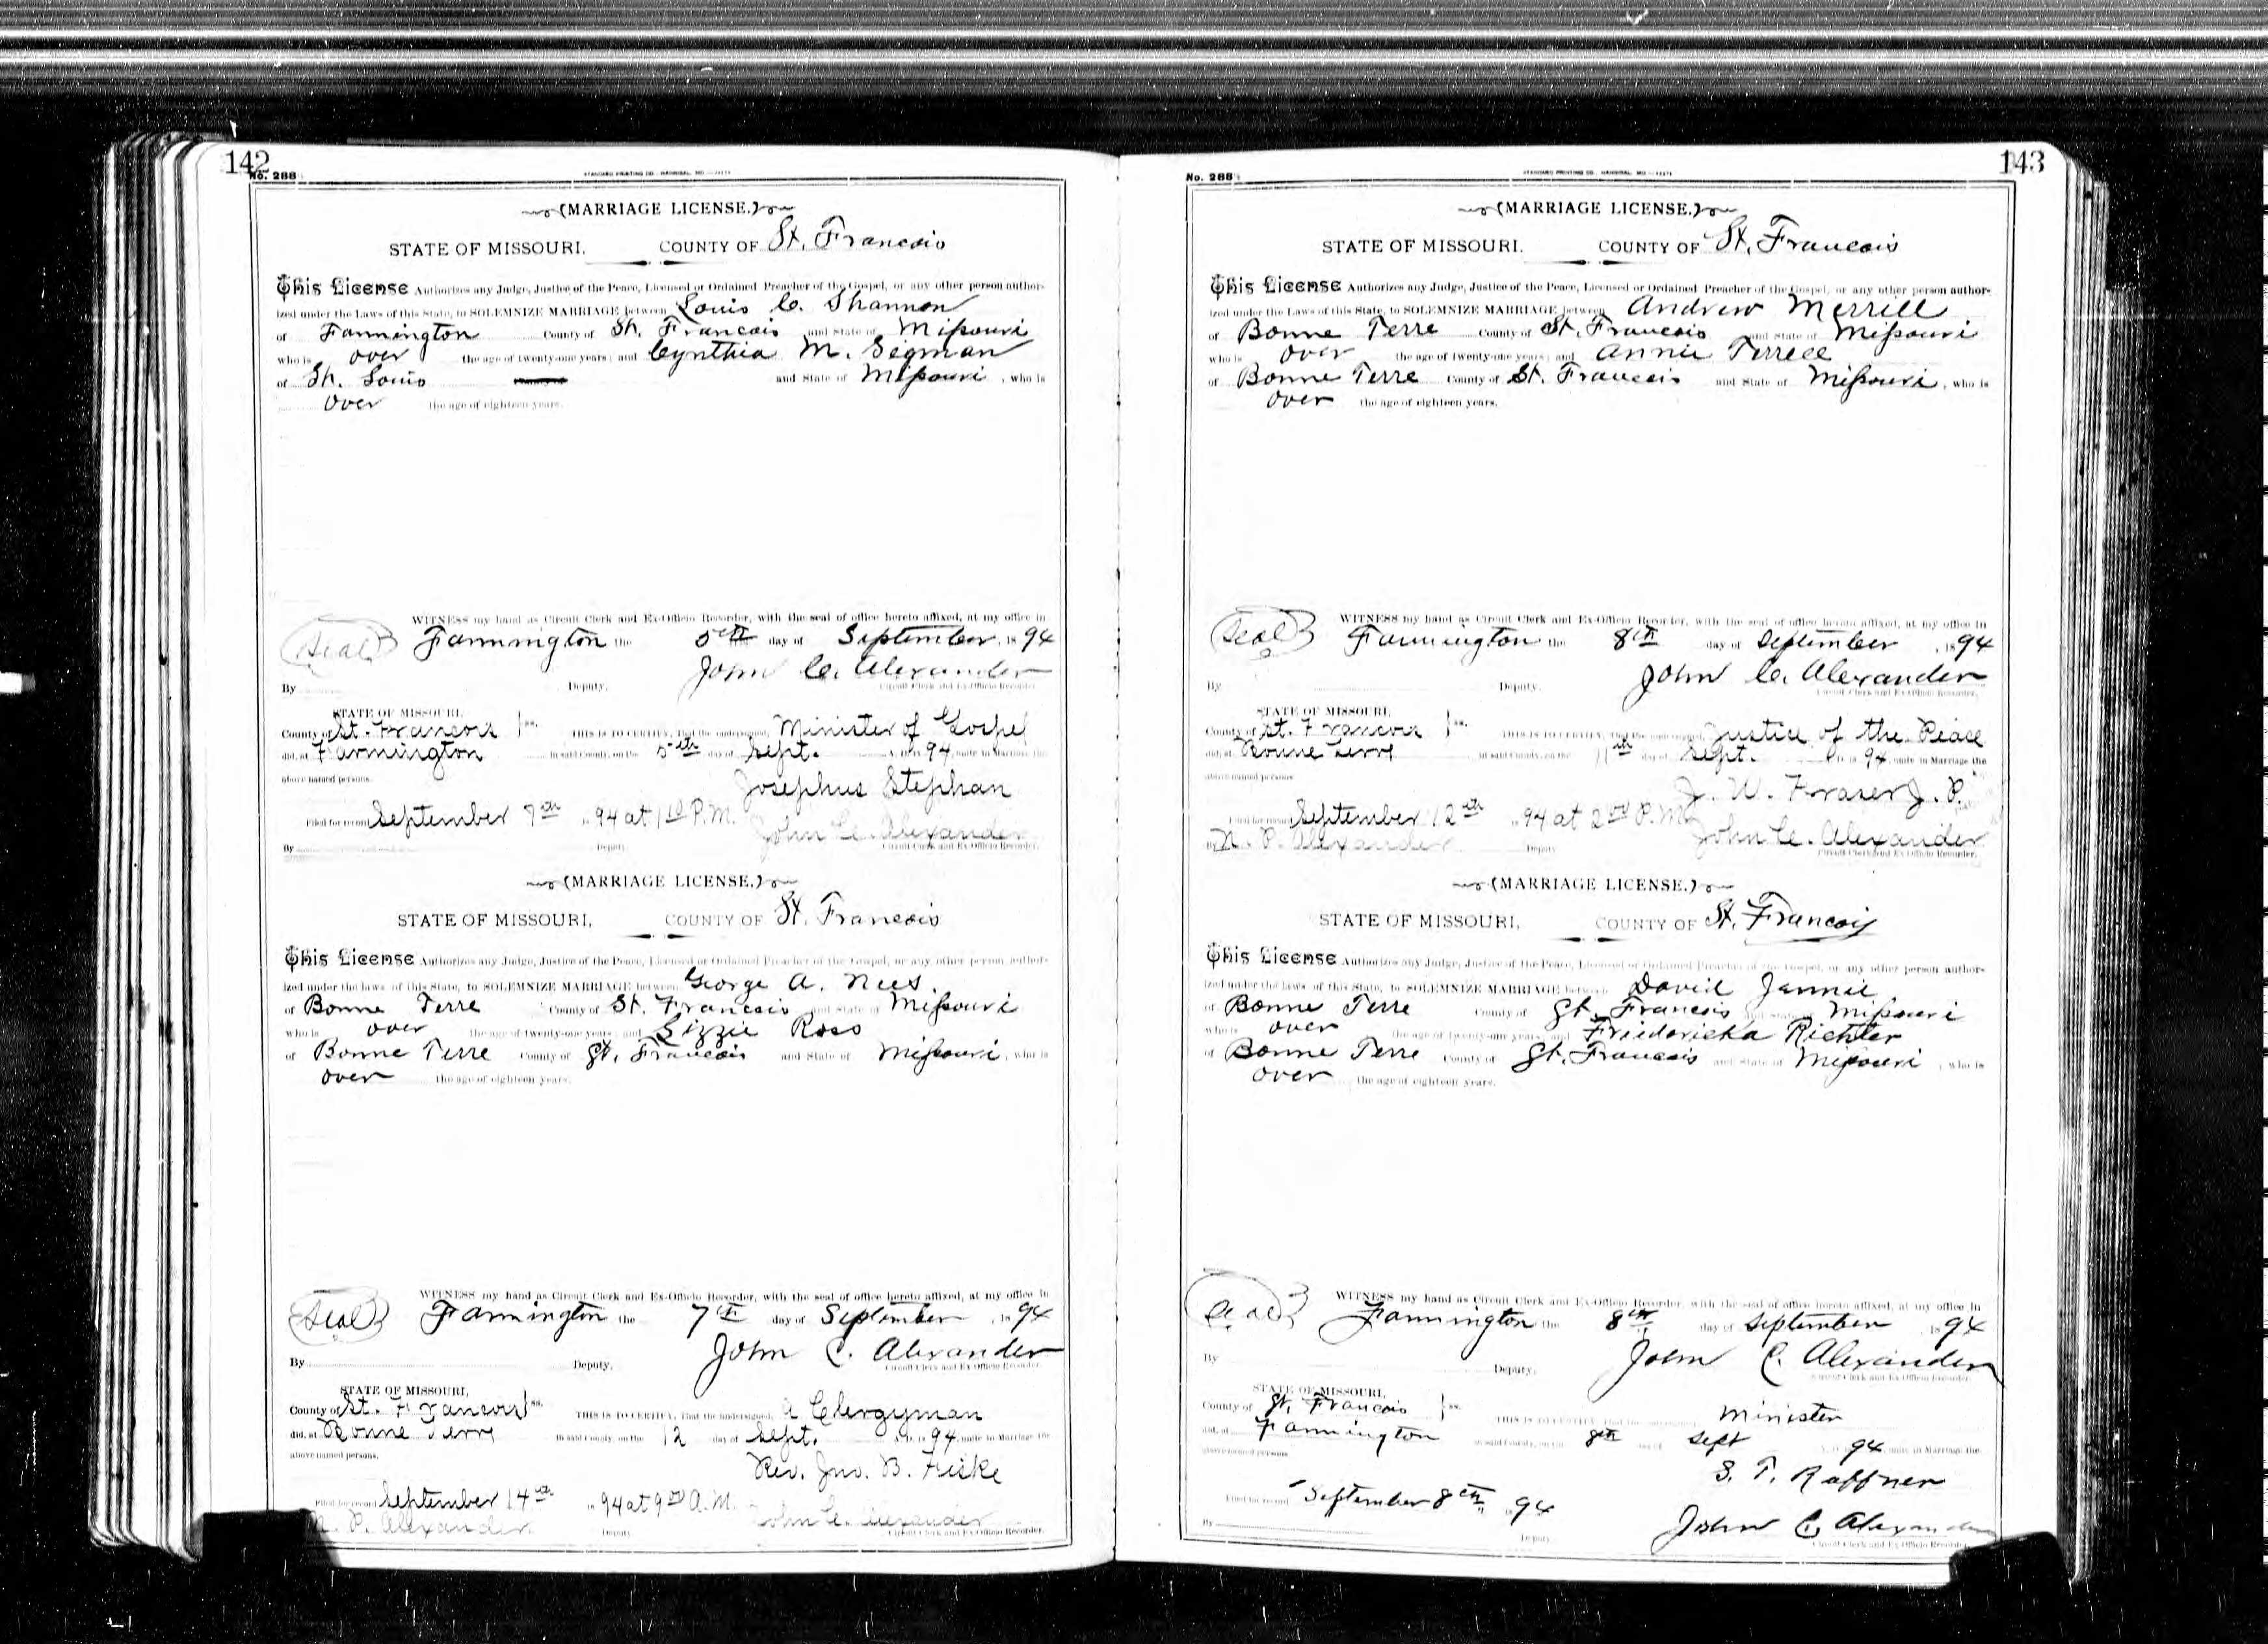 142
No. 288
(MARRIAGE LICENSE.)
STATE OF MISSOURI, COUNTY OF St. Francois
This License Authorizes any Judge, Justice of the Peace, Licensed or Ordained Preacher of the Gospel, or any other person author-
ized under the Laws of this State, to SOLEMNIZE MARRIAGE between Louis C. Shannon
of Farmington County of St. Francois and State of Missouri
who is over the age of twenty-one years; and Cynthia M. Sigman
of St. Louis and State of Missouri, who is
over the age of eighteen years.
WITNESS my hand as Circuit Clerk and Ex-Officio Recorder, with the seal of office hereto affixed, at my office in
Seal Farmington the 5th day of September, 1894
John C. Alexander
By Deputy. Circuit Clerk and Ex-Officio Recorder.
STATE OF MISSOURI,
County of St. Francois ss. THIS IS TO CERTIFY, That the undersigned Minister of Gospel
did, at Farmington in said County, on the 5th day of Sept. A. D. 1894, unite in Marriage the
above named persons.
Josephus Stephan
Filed for record September 7th 1894 at 1 00 P.M.
John C. Alexander
By Deputy. Circuit Clerk and Ex-Officio Recorder.
(MARRIAGE LICENSE.)
STATE OF MISSOURI, COUNTY OF St. Francois
This License Authorizes any Judge, Justice of the Peace, Licensed or Ordained Preacher of the Gospel, or any other person author-
ized under the laws of this State, to SOLEMNIZE MARRIAGE between George A. Nees
of Bonne Terre County of St. Francois and State of Missouri
who is over the age of twenty-one years; and Lizzie Ross
of Bonne Terre County of St. Francois and State of Missouri, who is
over the age of eighteen years.
WITNESS my hand as Circuit Clerk and Ex-Officio Recorder, with the seal of office hereto affixed, at my office in
Seal Farmington the 7th day of September, 1894
John C. Alexander
By Deputy. Circuit Clerk and Ex-Officio Recorder.
STATE OF MISSOURI,
County of St. Francois ss. THIS IS TO CERTIFY, That the undersigned, a Clergyman
did, at Bonne Terre in said County, on the 12 day of Sept. A. D. 1894, unite in Marriage the
above named persons.
Rev. Jno. B. Fiske
Filed for record September 14th 1894 at 9 00 A.M.
N. P. Alexander Deputy John C. Alexander
Circuit Clerk and Ex-Officio Recorder.
143
No. 288
(MARRIAGE LICENSE.)
STATE OF MISSOURI. COUNTY OF St. Francois
This License Authorizes any Judge, Justice of the Peace, Licensed or Ordained Preacher of the Gospel, or any other person author-
ized under the Laws of this State, to SOLEMNIZE MARRIAGE between Andrew Merrill
of Bonne Terre County of St. Francois and State of Missouri
who is over the age of twenty-one years; and Annie Terrell
of Bonne Terre County of St. Francois and State of Missouri, who is
over the age of eighteen years.
WITNESS my hand as Circuit Clerk and Ex-Officio Recorder, with the seal of office hereto affixed, at my office in
Seal Farmington the 8th day of September, 1894
John C. Alexander
By Deputy. Circuit Clerk and Ex-Officio Recorder.
STATE OF MISSOURI,
County of St. Francois ss. THIS IS TO CERTIFY, That the undersigned Justice of the Peace
did, at Bonne Terre in said County, on the 11th day of Sept. A. D. 1894, unite in Marriage the
above named persons
J. W. Fraser J. P.
Filed for record September 12th 1894 at 2 00 P.M.
John C. Alexander
By N. P. Alexander Deputy Circuit Clerk and Ex Officio Recorder.
(MARRIAGE LICENSE.)
STATE OF MISSOURI, COUNTY OF St. Francois
This License Authorizes any Judge, Justice of the Peace, Licensed or Ordained Preacher of the Gospel, or any other person author-
ized under the laws of this State, to SOLEMNIZE MARRIAGE between David Jannie
of Bonne Terre County of St. Francois and State of Missouri
who is over the age of twenty-one years; and Friedericka Richter
of Bonne Terre County of St. Francois and State of Missouri, who is
over the age of eighteen years.
WITNESS my hand as Circuit Clerk and Ex-Officio Recorder, with the seal of office hereto affixed, at my office in
Seal Farmington the 8th day of September 1894
John C. Alexander
By Deputy. Circuit Clerk and Ex Officio Recorder.
STATE OF MISSOURI,
County of St. Francois ss. THIS IS TO CERTIFY, That the undersigned Minister
did, at Farmington in said County, on the 8th day of Sept A. D. 1894 unite in Marriage the
above named persons
S. T. Ruffner
Filed for record September 8th, 1894
John C. Alexander
By Deputy Circuit Clerk and Ex Officio Recorder.